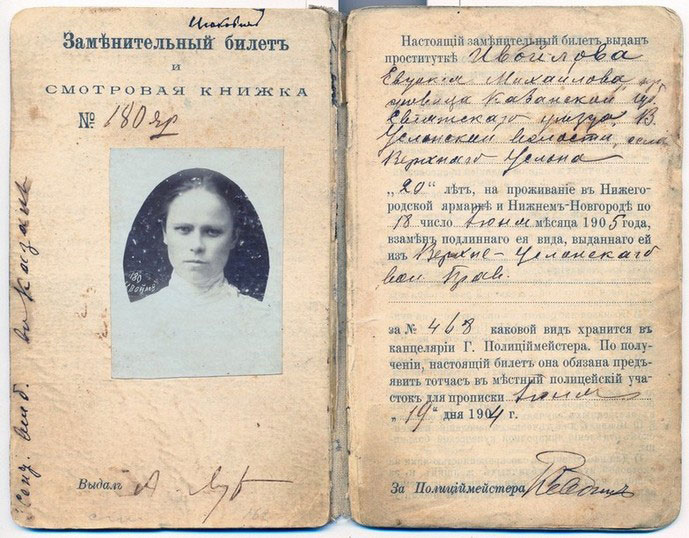 Замѣнительный билетъ
и
СМОТРОВАЯ КНИЖКА
№ 180 яр
180
Выдалъ
Настоящій замѣнительный билетъ выданъ
проституткѣ Ивойлова
Евдокія Михайлова, кр.
Казанской гу.
уѣзда, В.
Услонской волости, села
Верхнаго Услона
„20“ лѣтъ, на проживаніе въ Нижего-
родской ярмаркѣ и Нижнемъ-Новгородѣ по
18 число Іюня мѣсяца 1905 года,
взамѣнъ подлиннаго ея вида, выданнаго ей
изъ Верхне-Услонскаго
вол. Прав.
за № 468 каковой видъ хранится въ
канцеляріи Г. Полиціймейстера. По полу-
ченіи, настоящій билетъ она обязана предъ-
явить тотчасъ въ мѣстный полицейскій уча-
стокъ для прописки Іюня
„19“ дня 1904 г.
За Полиціймейстера